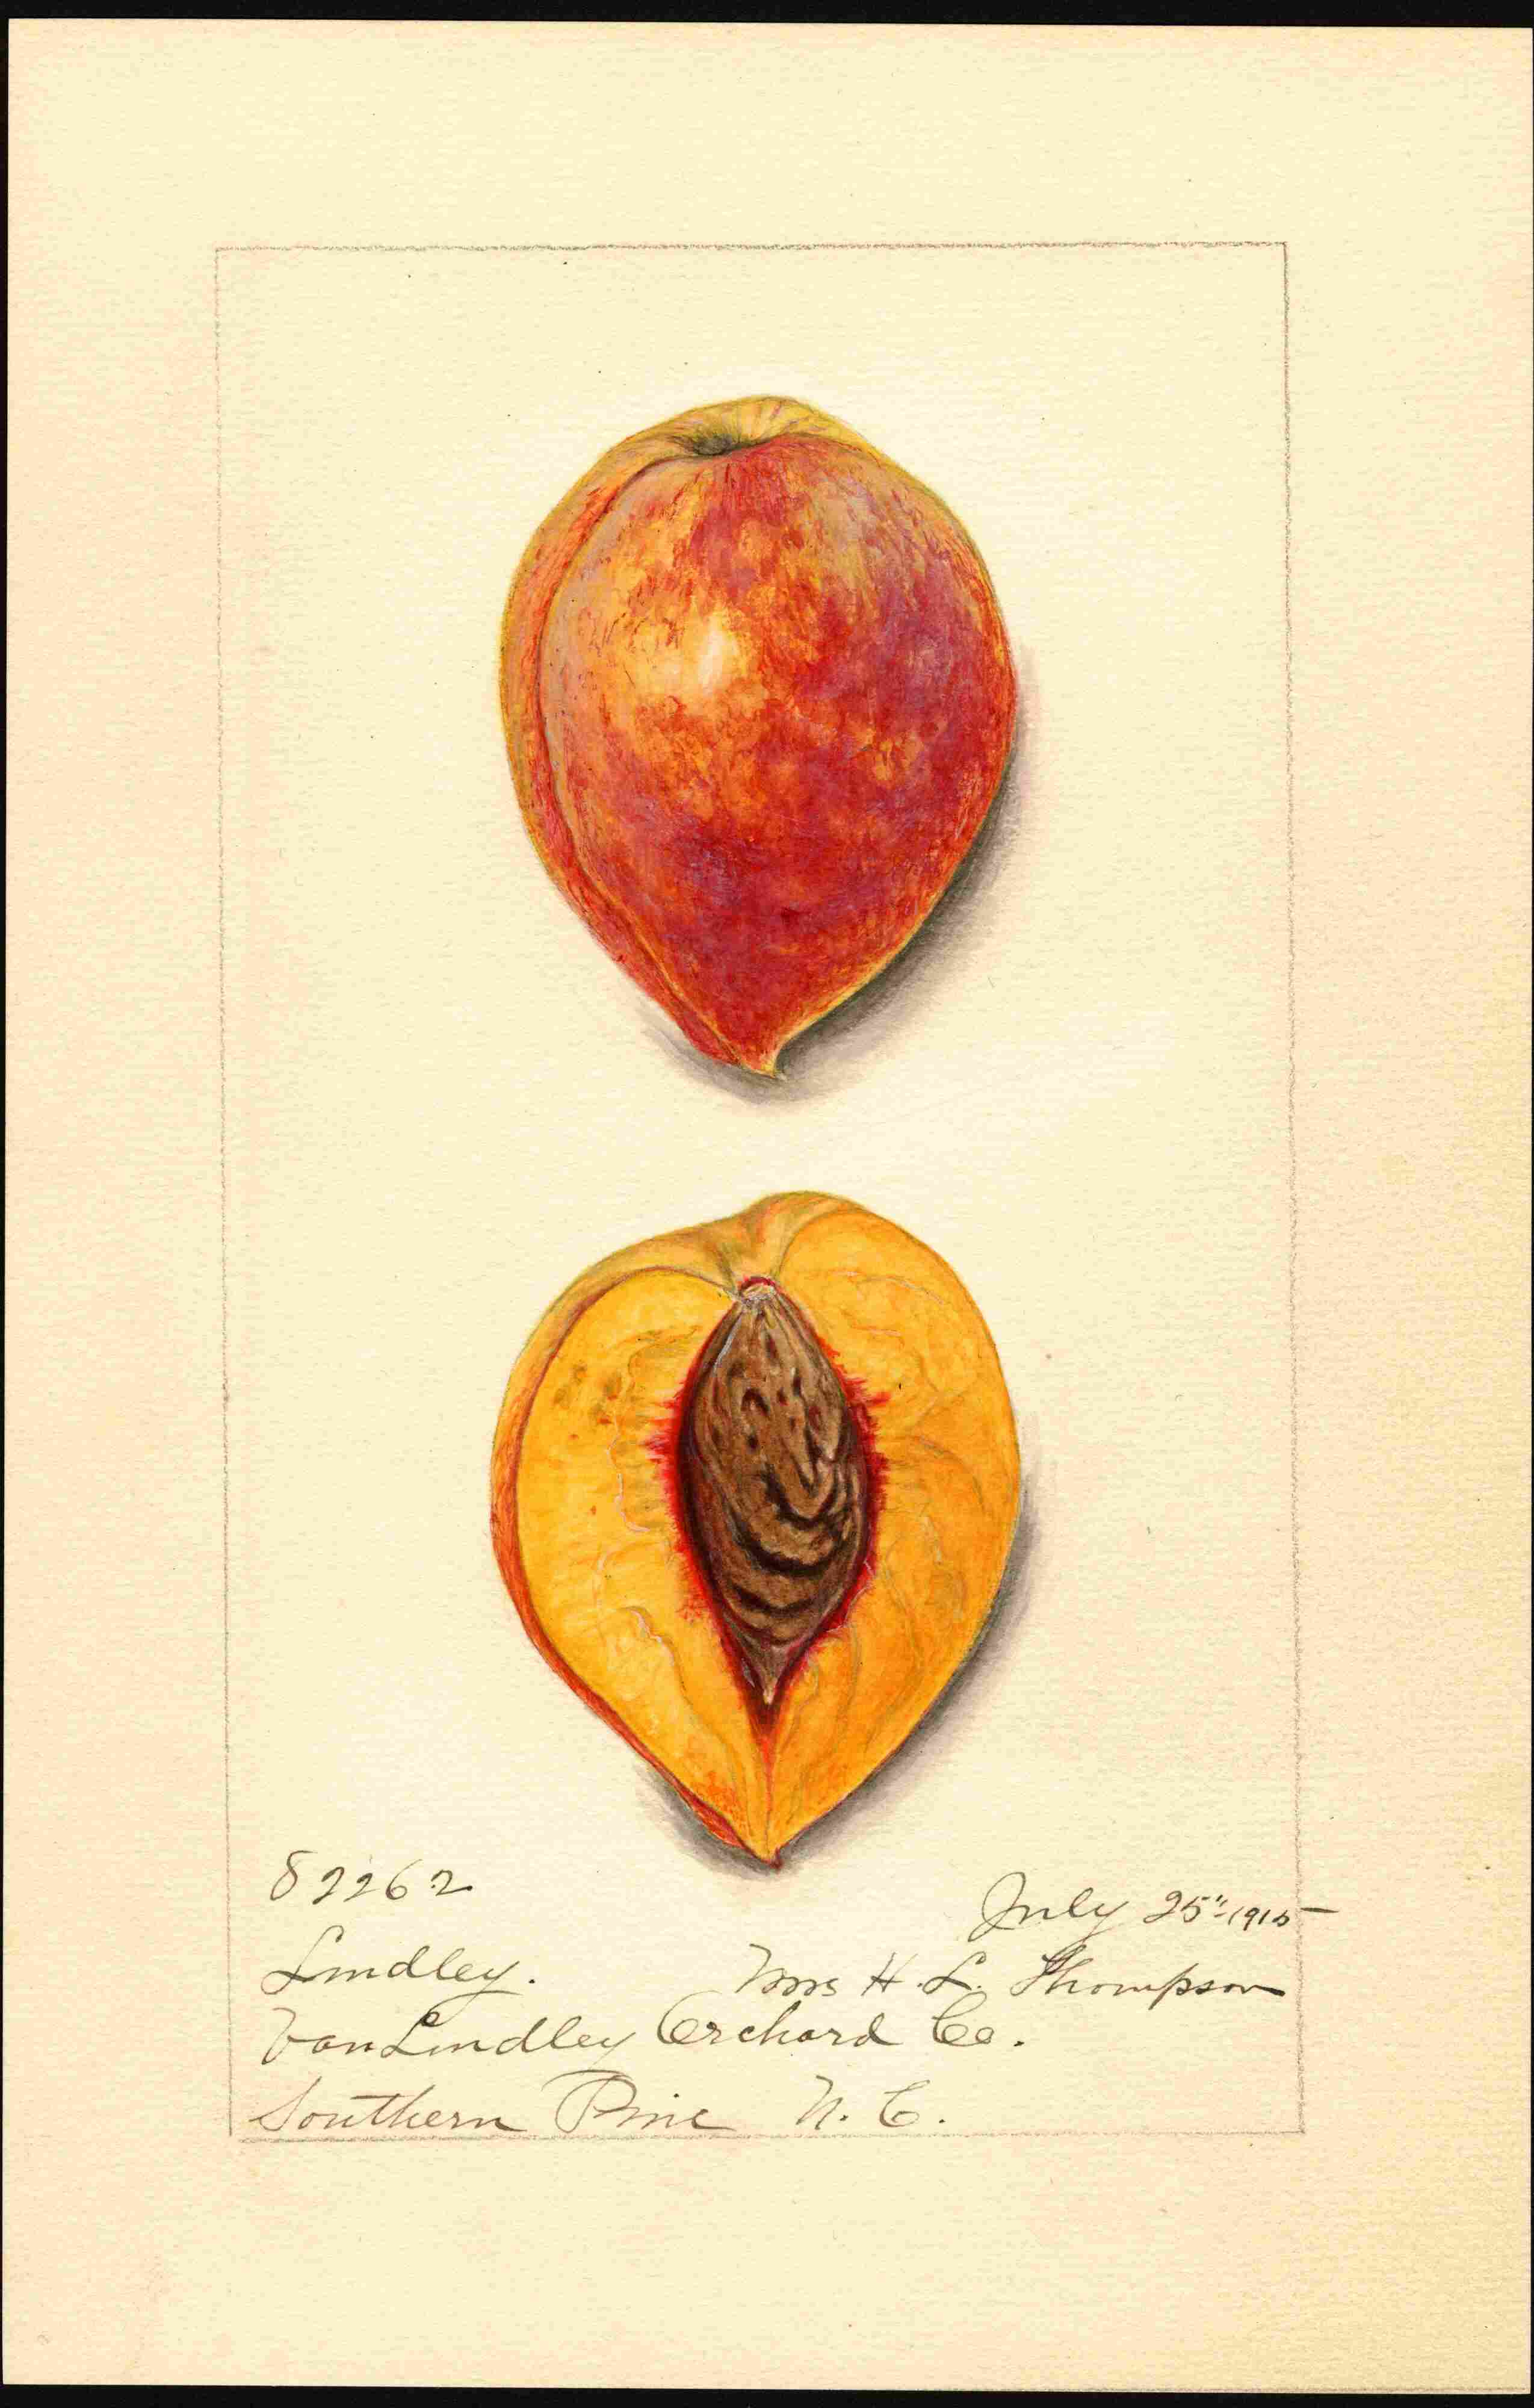 82262
July 25" 1915
Lindley.
Mrs H. L. Thompson
Van Lindley Orchard Co.
Southern Pine N. C.